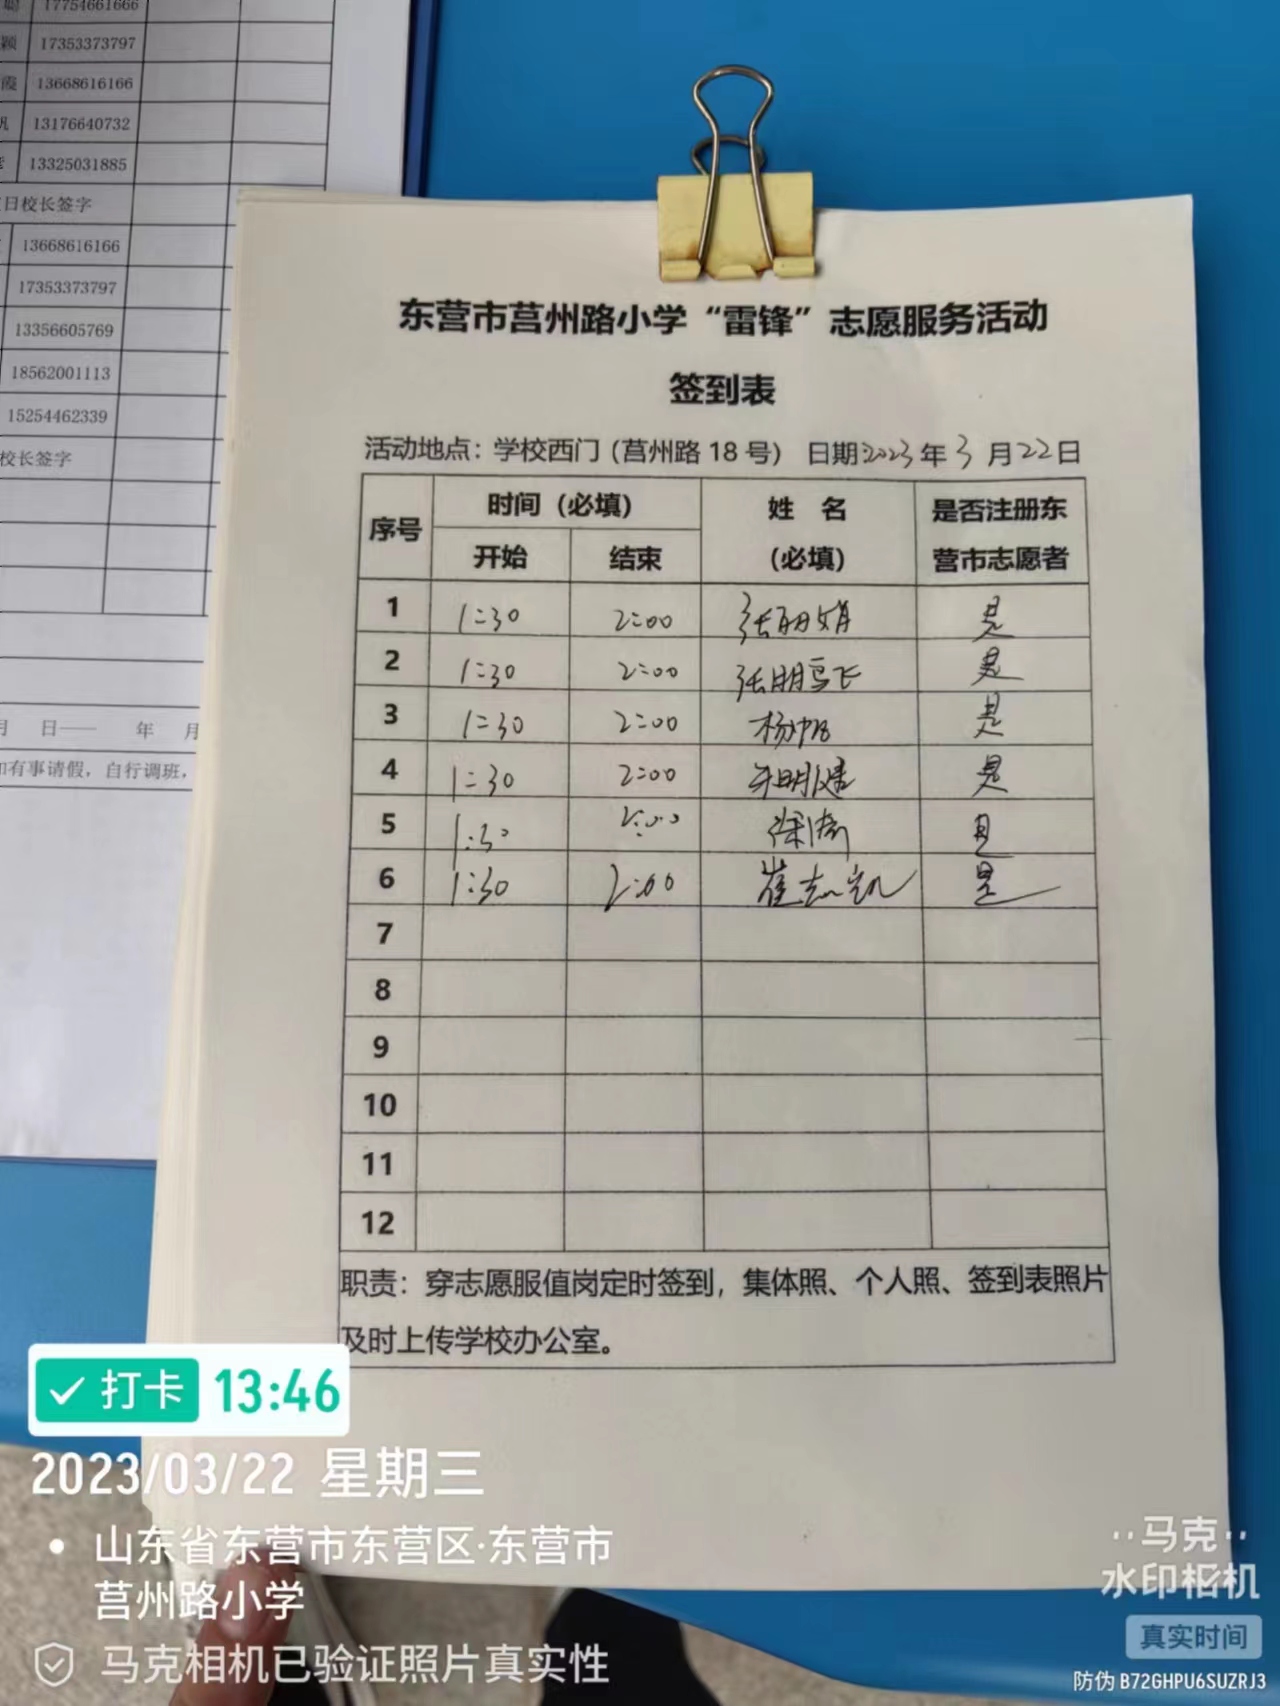 聪 17754661666
颖 17353373797
霞 13668616166
帆 13176640732
13325031885
日校长签字
13668616166
17353373797
13356605769
18562001113
15254462339
校长签字
月 日—— 年 月
如有事请假，自行调班，
东营市莒州路小学“雷锋”志愿服务活动
签到表
活动地点：学校西门（莒州路 18 号） 日期2023年3月22日
序号 时间（必填） 姓 名（必填） 是否注册东营市志愿者
开始 结束
1 1:30 2:00 张丽娟 是
2 1:30 2:00 张鹏飞 是
3 1:30 2:00 杨帆 是
4 1:30 2:00 是
5 1:30 2:00 是
6 1:30 2:00 崔志凯 是
7
8
9
10
11
12
职责：穿志愿服值岗定时签到，集体照、个人照、签到表照片
及时上传学校办公室。
打卡 13:46
2023/03/22 星期三
山东省东营市东营区·东营市
莒州路小学
马克相机已验证照片真实性
马克
水印相机
真实时间
防伪 B72GHPU6SUZRJ3